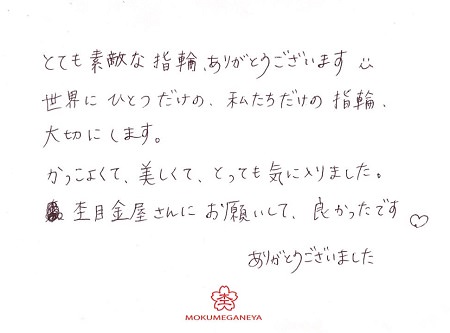 とても素敵な指輪、ありがとうございます
世界にひとつだけの、私たちだけの指輪、
大切にします。
かっこよくて、美しくて、とっても気に入りました。
杢目金屋さんにお願いして、良かったです♡
ありがとうございました
杢
MOKUMEGANEYA